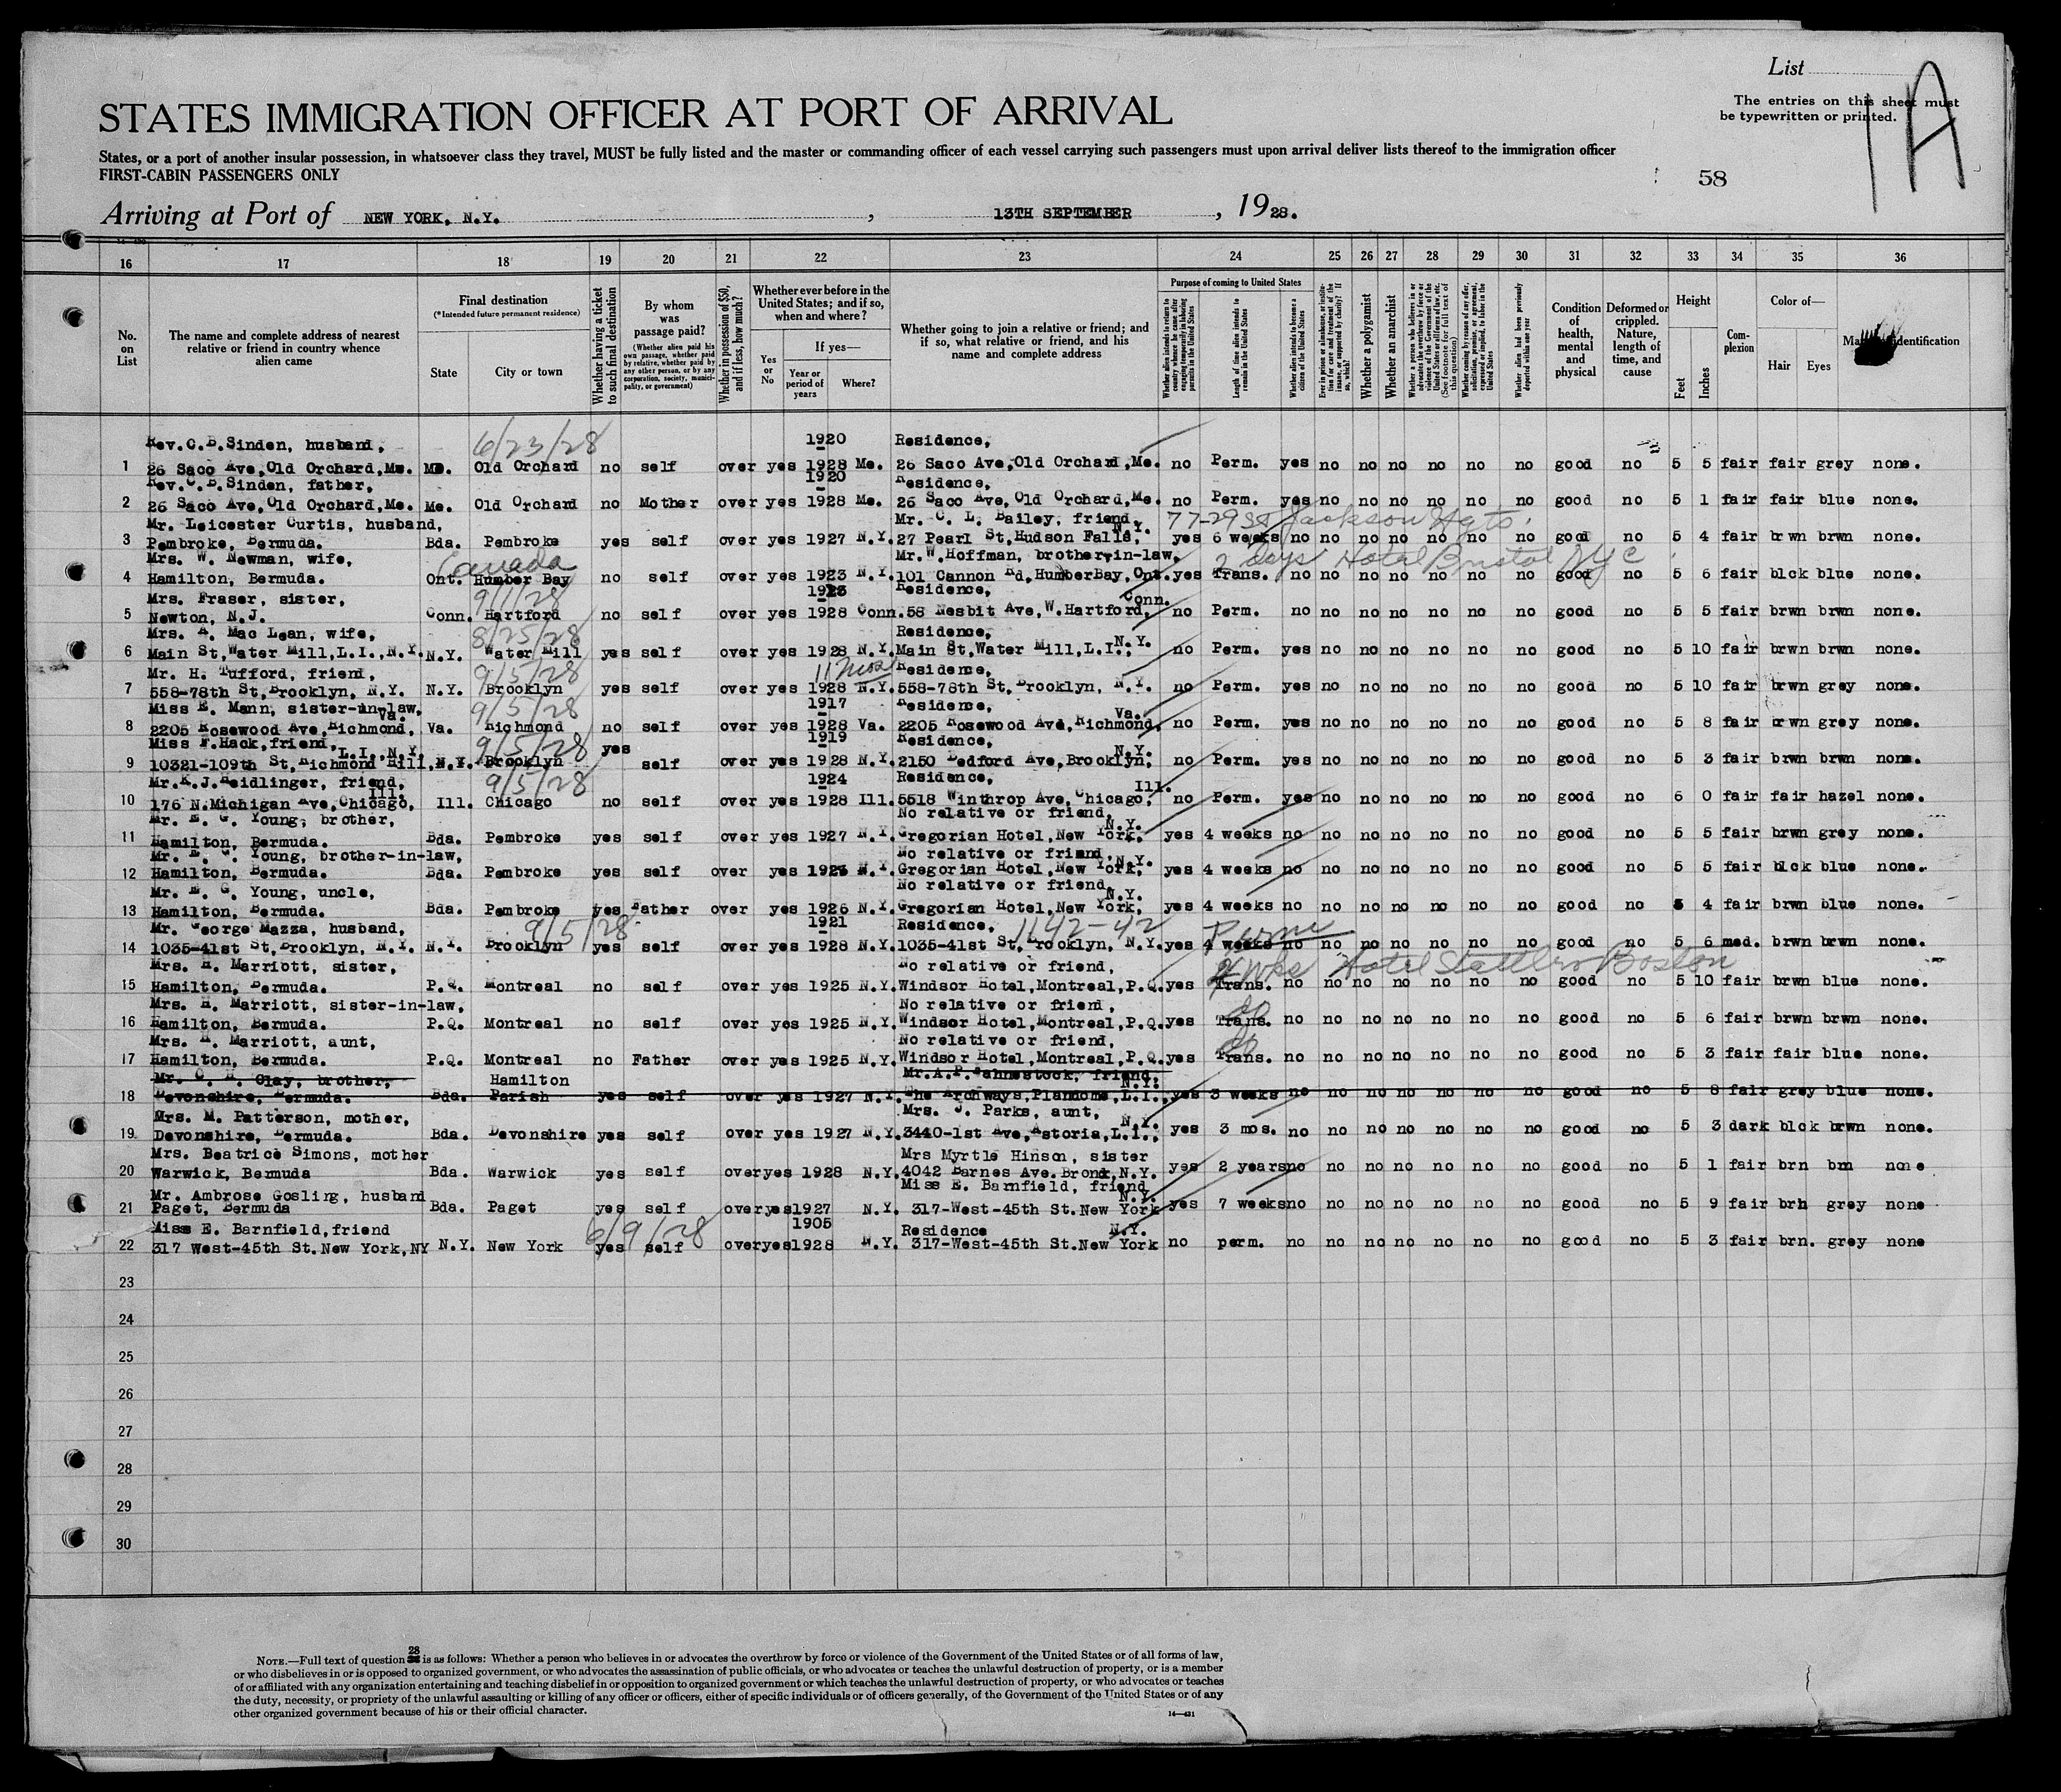 List
1A
The entries on this sheet must
be typewritten or printed.
STATES IMMIGRATION OFFICER AT PORT OF ARRIVAL
States, or a port of another insular possession, in whatsoever class they travel, MUST be fully listed and the master or commanding officer of each vessel carrying such passengers must upon arrival deliver lists thereof to the immigration officer
FIRST-CABIN PASSENGERS ONLY
58
Arriving at Port of NEW YORK, N.Y. , 13TH SEPTEMBER , 1928.
16 17 18 19 20 21 22 23 24 25 26 27 28 29 30 31 32 33 34 35 36
No. on List
The name and complete address of nearest relative or friend in country whence alien came
Final destination
(*Intended future permanent residence)
State
City or town
Whether having a ticket to such final destination
By whom was passage paid?
(Whether alien paid his own passage, whether paid by relative, whether paid by any other person, or by any corporation, society, municipality, or government)
Whether in possession of $50, and if less, how much?
Whether ever before in the United States; and if so, when and where?
Yes or No
If yes—
Year or period of years
Where?
Whether going to join a relative or friend; and if so, what relative or friend, and his name and complete address
Purpose of coming to United States
Whether alien intends to return to country whence he came after engaging temporarily in laboring pursuits in the United States
Length of time alien intends to remain in the United States
Whether alien intends to become a citizen of the United States
Ever in prison or almshouse, or institution for care and treatment of the insane, or supported by charity? If so, which?
Whether a polygamist
Whether an anarchist
Whether a person who believes in or advocates the overthrow by force or violence of the Government of the United States or all forms of law, etc. (See footnote for full text of this question)
Whether coming by reason of any offer, solicitation, promise, or agreement, expressed or implied, to labor in the United States
Whether alien had been previously deported within one year
Condition of health, mental and physical
Deformed or crippled. Nature, length of time, and cause
Height
Feet
Inches
Complexion
Color of—
Hair
Eyes
identification
Rev.C.B.Sinden, husband, 6/23/28 1920 Residence,
1 26 Saco Ave,Old Orchard,Me. Me. Old Orchard no self over yes 1928 Me. 26 Saco Ave,Old Orchard,Me. no Perm. yes no no no no no no good no 5 5 fair fair grey none.
Rev.C.B.Sinden, father, 1920 Residence,
2 26 Saco Ave,Old Orchard,Me. Me. Old Orchard no Mother over yes 1928 Me. 26 Saco Ave,Old Orchard,Me. no Perm. yes no no no no no no good no 5 1 fair fair blue none.
Mr. Leicester Curtis, husband, Mr. C. L. Bailey, friend, N.Y. 77-29 St Jackson Hgts.
3 Pembroke, Bermuda. Bda. Pembroke yes self over yes 1927 N.Y. 27 Pearl St,Hudson Falls, yes 6 weeks no no no no no no no good no 5 4 fair brwn brwn none.
Mrs. W. Newman, wife, Canada Mr.W.Hoffman, brother-in-law, 2 days Hotel Bristol NYC
4 Hamilton, Bermuda. Ont. Humber Bay no self over yes 1923 N.Y. 101 Cannon Rd,HumberBay,Ont. yes Trans. no no no no no no no good no 5 6 fair blck blue none.
Mrs. Fraser, sister, 9/1/28 1923 Residence, Conn.
5 Newton, N.J. Conn. Hartford no self over yes 1928 Conn. 58 Nesbit Ave,W.Hartford, no Perm. no no no no no no no good no 5 5 fair brwn brwn none.
Mrs. A. Mac Lean, wife, 8/25/28 Residence, N.Y.
6 Main St,Water Mill,L.I.,N.Y. N.Y. Water Mill yes self over yes 1928 N.Y. Main St,Water Mill,L.I., no Perm. yes no no no no no no good no 5 10 fair brwn brwn none.
Mr. H. Tufford, friend, 9/5/28 11 mos Residence,
7 558-78th St,Brooklyn, N.Y. N.Y. Brooklyn yes self over yes 1928 N.Y. 558-78th St,Brooklyn, N.Y. no Perm. yes no no no no no no good no 5 10 fair brwn grey none.
Miss E. Mann, sister-in-law, Va. 9/5/28 1917 Residence, Va.
8 2205 Rosewood Ave,Richmond, Va. Richmond no self over yes 1928 Va. 2205 Rosewood Ave,Richmond, no Perm. yes no no no no no no good no 5 8 fair brwn grey none.
Miss F.Hack,friend, L.I.,N.Y. 9/5/28 yes 1919 Residence, N.Y.
9 10321-109th St,Richmond Hill, N.Y. Brooklyn self over yes 1928 N.Y. 2150 Bedford Ave,Brooklyn, no Perm. yes no no no no no no good no 5 3 fair brwn brwn none.
Mr.K.J.Heidlinger, friend, Ill. 9/5/28 1924 Residence, Ill.
10 176 N.Michigan Ave,Chicago, Ill. Chicago no self over yes 1928 Ill. 5518 Winthrop Ave,Chicago, no Perm. yes no no no no no no good no 6 0 fair fair hazel none.
Mr. E. G. Young, brother, No relative or friend, N.Y.
11 Hamilton, Bermuda. Bda. Pembroke yes self over yes 1927 N.Y. Gregorian Hotel,New York, yes 4 weeks no no no no no no no good no 5 5 fair brwn grey none.
Mr. E. G. Young, brother-in-law, No relative or friend, N.Y.
12 Hamilton, Bermuda. Bda. Pembroke yes self over yes 1923 N.Y. Gregorian Hotel,New York, yes 4 weeks no no no no no no no good no 5 5 fair blck blue none.
Mr. E. G. Young, uncle, No relative or friend, N.Y.
13 Hamilton, Bermuda. Bda. Pembroke yes Father over yes 1926 N.Y. Gregorian Hotel,New York, yes 4 weeks no no no no no no no good no 5 4 fair brwn blue none.
Mr. George Mazza, husband, 9/5/28 1921 Residence, 1142-42 Perm
14 1035-41st St,Brooklyn, N.Y. N.Y. Brooklyn yes self over yes 1928 N.Y. 1035-41st St,Brooklyn, N.Y. yes 4 weeks no no no no no no no good no 5 6 med. brwn brwn none.
Mrs. H. Marriott, sister, No relative or friend, wks Hotel Statler Boston
15 Hamilton, Bermuda. P.Q. Montreal no self over yes 1925 N.Y. Windsor Hotel,Montreal,P.Q. yes Trans. no no no no no no no good no 5 10 fair brwn blue none.
Mrs. H. Marriott, sister-in-law, No relative or friend, do
16 Hamilton, Bermuda. P.Q. Montreal no self over yes 1925 N.Y. Windsor Hotel,Montreal,P.Q. yes Trans. no no no no no no no good no 5 6 fair brwn brwn none.
Mrs. H. Marriott, aunt, No relative or friend, do
17 Hamilton, Bermuda. P.Q. Montreal no Father over yes 1925 N.Y. Windsor Hotel,Montreal,P.Q. yes Trans. no no no no no no no good no 5 3 fair fair blue none.
Mr. C. H. Clay, brother, Hamilton Mr.A.P.Fahnestock, friend, N.Y.
18 Devonshire, Bermuda. Bda. Parish yes self over yes 1927 N.Y. The Archways,Plandome,L.I., yes 3 weeks no no no no no no no good no 5 8 fair grey blue none.
Mrs. M. Patterson, mother, Mrs. J. Parks, aunt, N.Y.
19 Devonshire, Bermuda. Bda. Devonshire yes self over yes 1927 N.Y. 3440-1st Ave,Astoria,L.I., yes 3 mos. no no no no no no no good no 5 3 dark blck brwn none.
Mrs. Beatrice Simons, mother Mrs Myrtle Hinson, sister
20 Warwick, Bermuda Bda. Warwick yes self over yes 1928 N.Y. 4042 Barnes Ave.Bronx,N.Y. yes 2 years no no no no no no no good no 5 1 fair brn brn none
Mr. Ambrose Gosling, husband Miss E. Barnfield, friend N.Y.
21 Paget, Bermuda Bda. Paget yes self over yes 1927 N.Y. 317-West-45th St.New York yes 7 weeks no no no no no no no good no 5 9 fair brn grey none
Miss E. Barnfield,friend 6/9/28 1905 Residence N.Y.
22 317 West-45th St.New York,NY N.Y. New York yes self over yes 1928 N.Y. 317-West-45th St.New York no perm. no no no no no no no good no 5 3 fair brn. grey none
23
24
25
26
27
28
29
30
NOTE.—Full text of question 28 is as follows: Whether a person who believes in or advocates the overthrow by force or violence of the Government of the United States or of all forms of law,
or who disbelieves in or is opposed to organized government, or who advocates the assassination of public officials, or who advocates or teaches the unlawful destruction of property, or is a member
of or affiliated with any organization entertaining and teaching disbelief in or opposition to organized government or which teaches the unlawful destruction of property, or who advocates or teaches
the duty, necessity, or propriety of the unlawful assaulting or killing of any officer or officers, either of specific individuals or of officers generally, of the Government of the United States or of any
other organized government because of his or their official character.
14—431